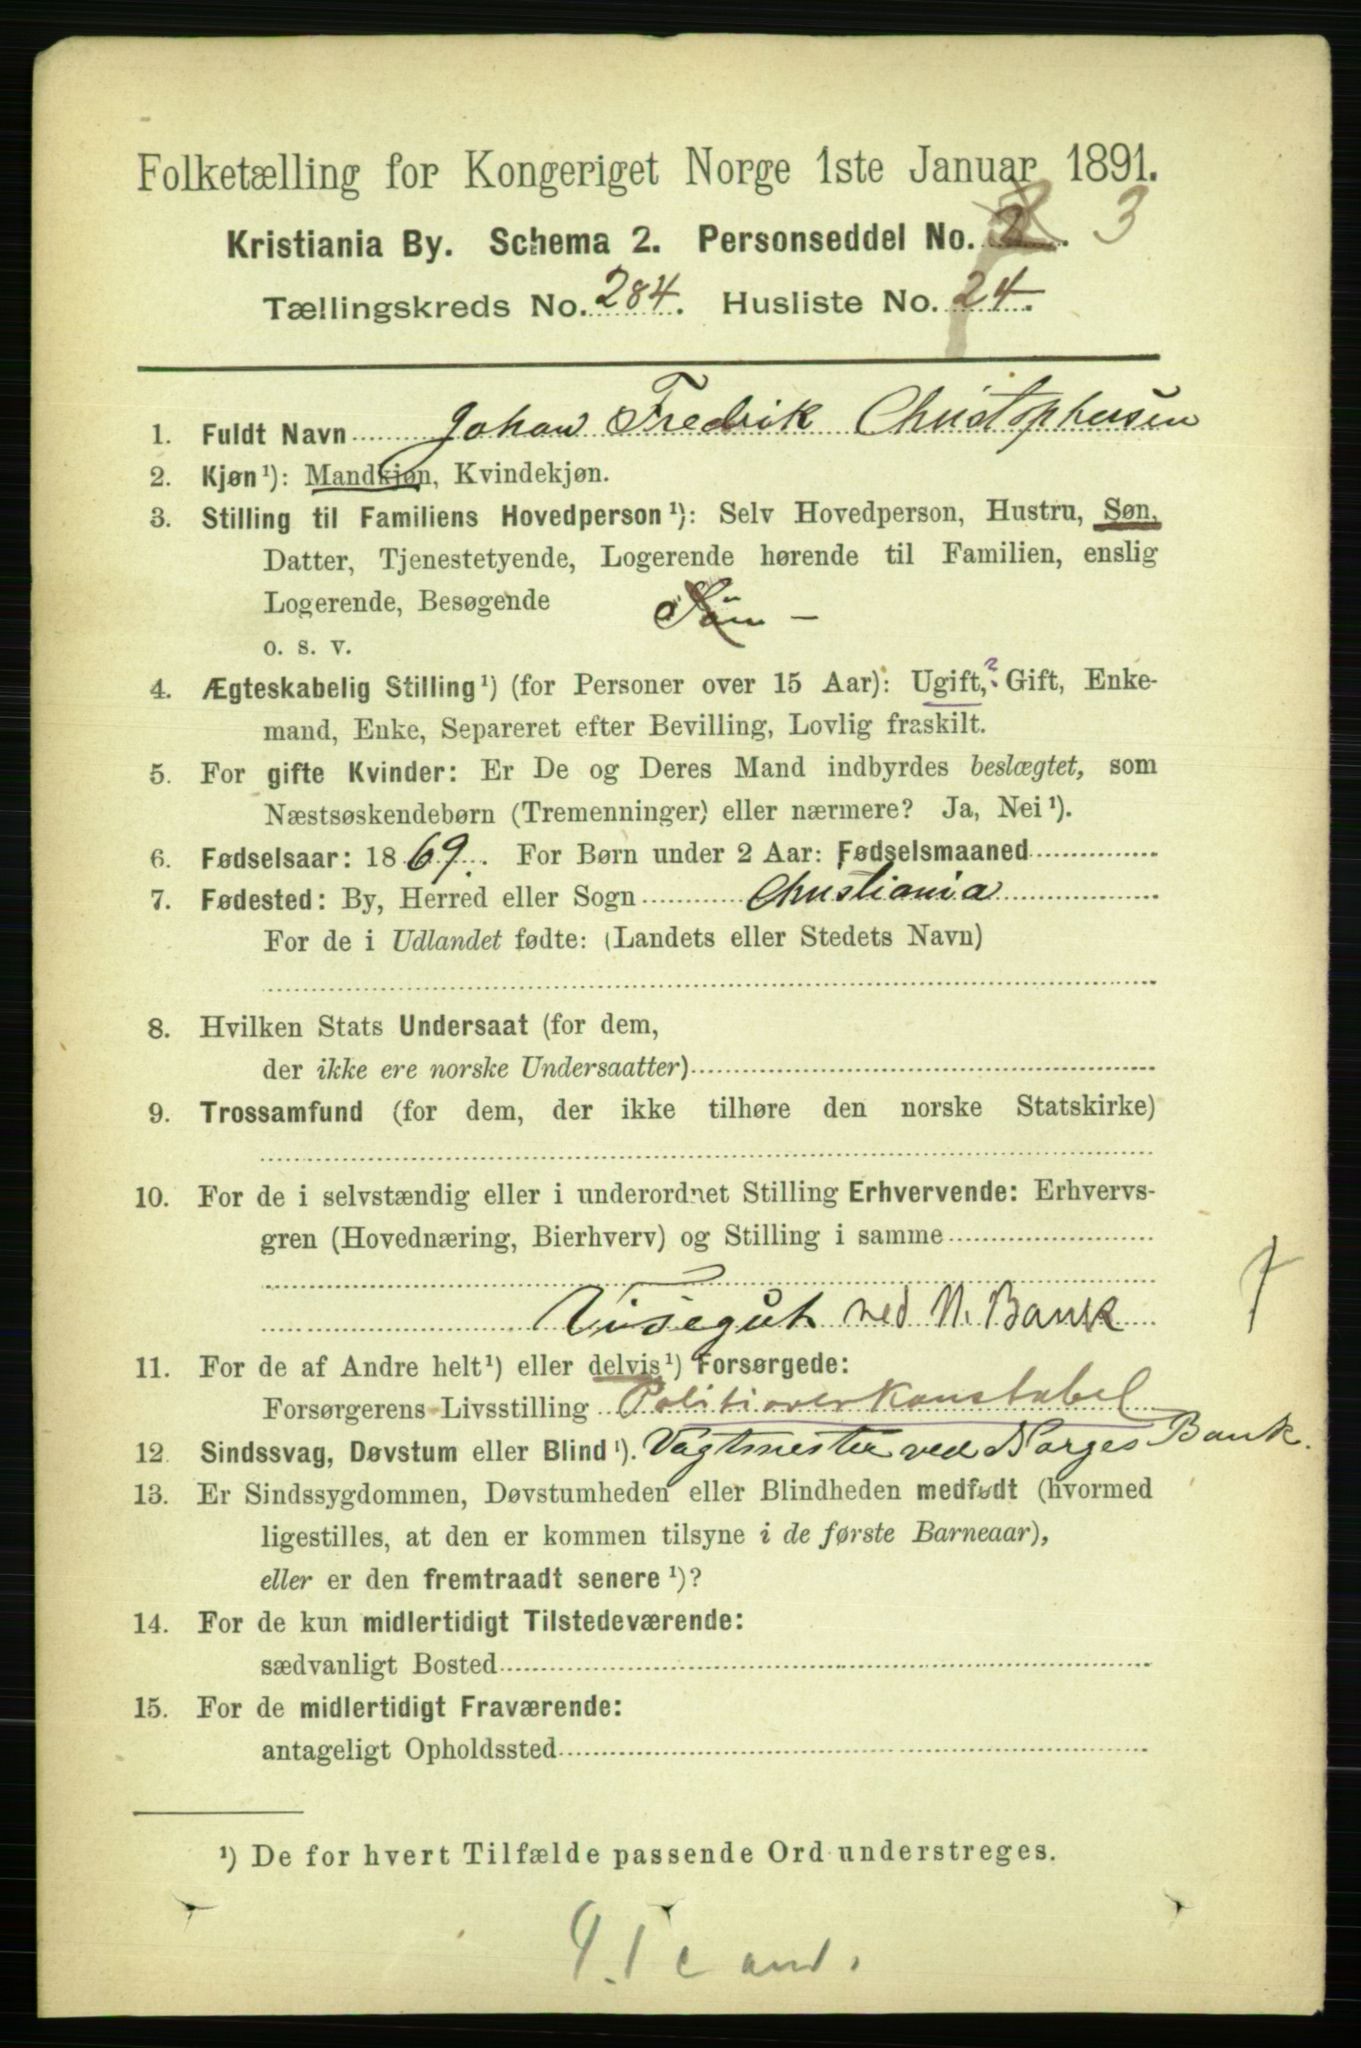 Folketælling for Kongeriget Norge 1ste Januar 1891.
Kristiania By. Schema 2. Personseddel No. 2. 3
Tællingskreds No. 284. Husliste No. 24.
1. Fuldt Navn Johan Fredrik Christophersen
2. Kjøn¹): Mandkjøn, Kvindekjøn.
3. Stilling til Familiens Hovedperson¹): Selv Hovedperson, Hustru, Søn,
Datter, Tjenestetyende, Logerende hørende til Familien, enslig
Logerende, Besøgende
Søn -
o. s. v.
4. Ægteskabelig Stilling¹) (for Personer over 15 Aar): Ugift,? Gift, Enke-
mand, Enke, Separeret efter Bevilling, Lovlig fraskilt.
5. For gifte Kvinder: Er De og Deres Mand indbyrdes beslægtet, som
Næstsøskendebørn (Tremenninger) eller nærmere? Ja, Nei¹).
6. Fødselsaar: 1869. For Børn under 2 Aar: Fødselsmaaned
7. Fødested: By, Herred eller Sogn Christiania
For de i Udlandet fødte: (Landets eller Stedets Navn)
8. Hvilken Stats Undersaat (for dem,
der ikke ere norske Undersaatter)
9. Trossamfund (for dem, der ikke tilhøre den norske Statskirke)
10. For de i selvstændig eller i underordnet Stilling Erhvervende: Erhvervs-
gren (Hovednæring, Bierhverv) og Stilling i samme
Visegut ved N. Bank
11. For de af Andre helt¹) eller delvis¹) Forsørgede:
Forsørgerens Livsstilling Politioverkonstabel
12. Sindssvag, Døvstum eller Blind¹). Vagtmester ved Norges Bank.
13. Er Sindssygdommen, Døvstumheden eller Blindheden medfødt (hvormed
ligestilles, at den er kommen tilsyne i de første Barneaar),
eller er den fremtraadt senere¹)?
14. For de kun midlertidigt Tilstedeværende:
sædvanligt Bosted
15. For de midlertidigt Fraværende:
antageligt Opholdssted
¹) De for hvert Tilfælde passende Ord understreges.